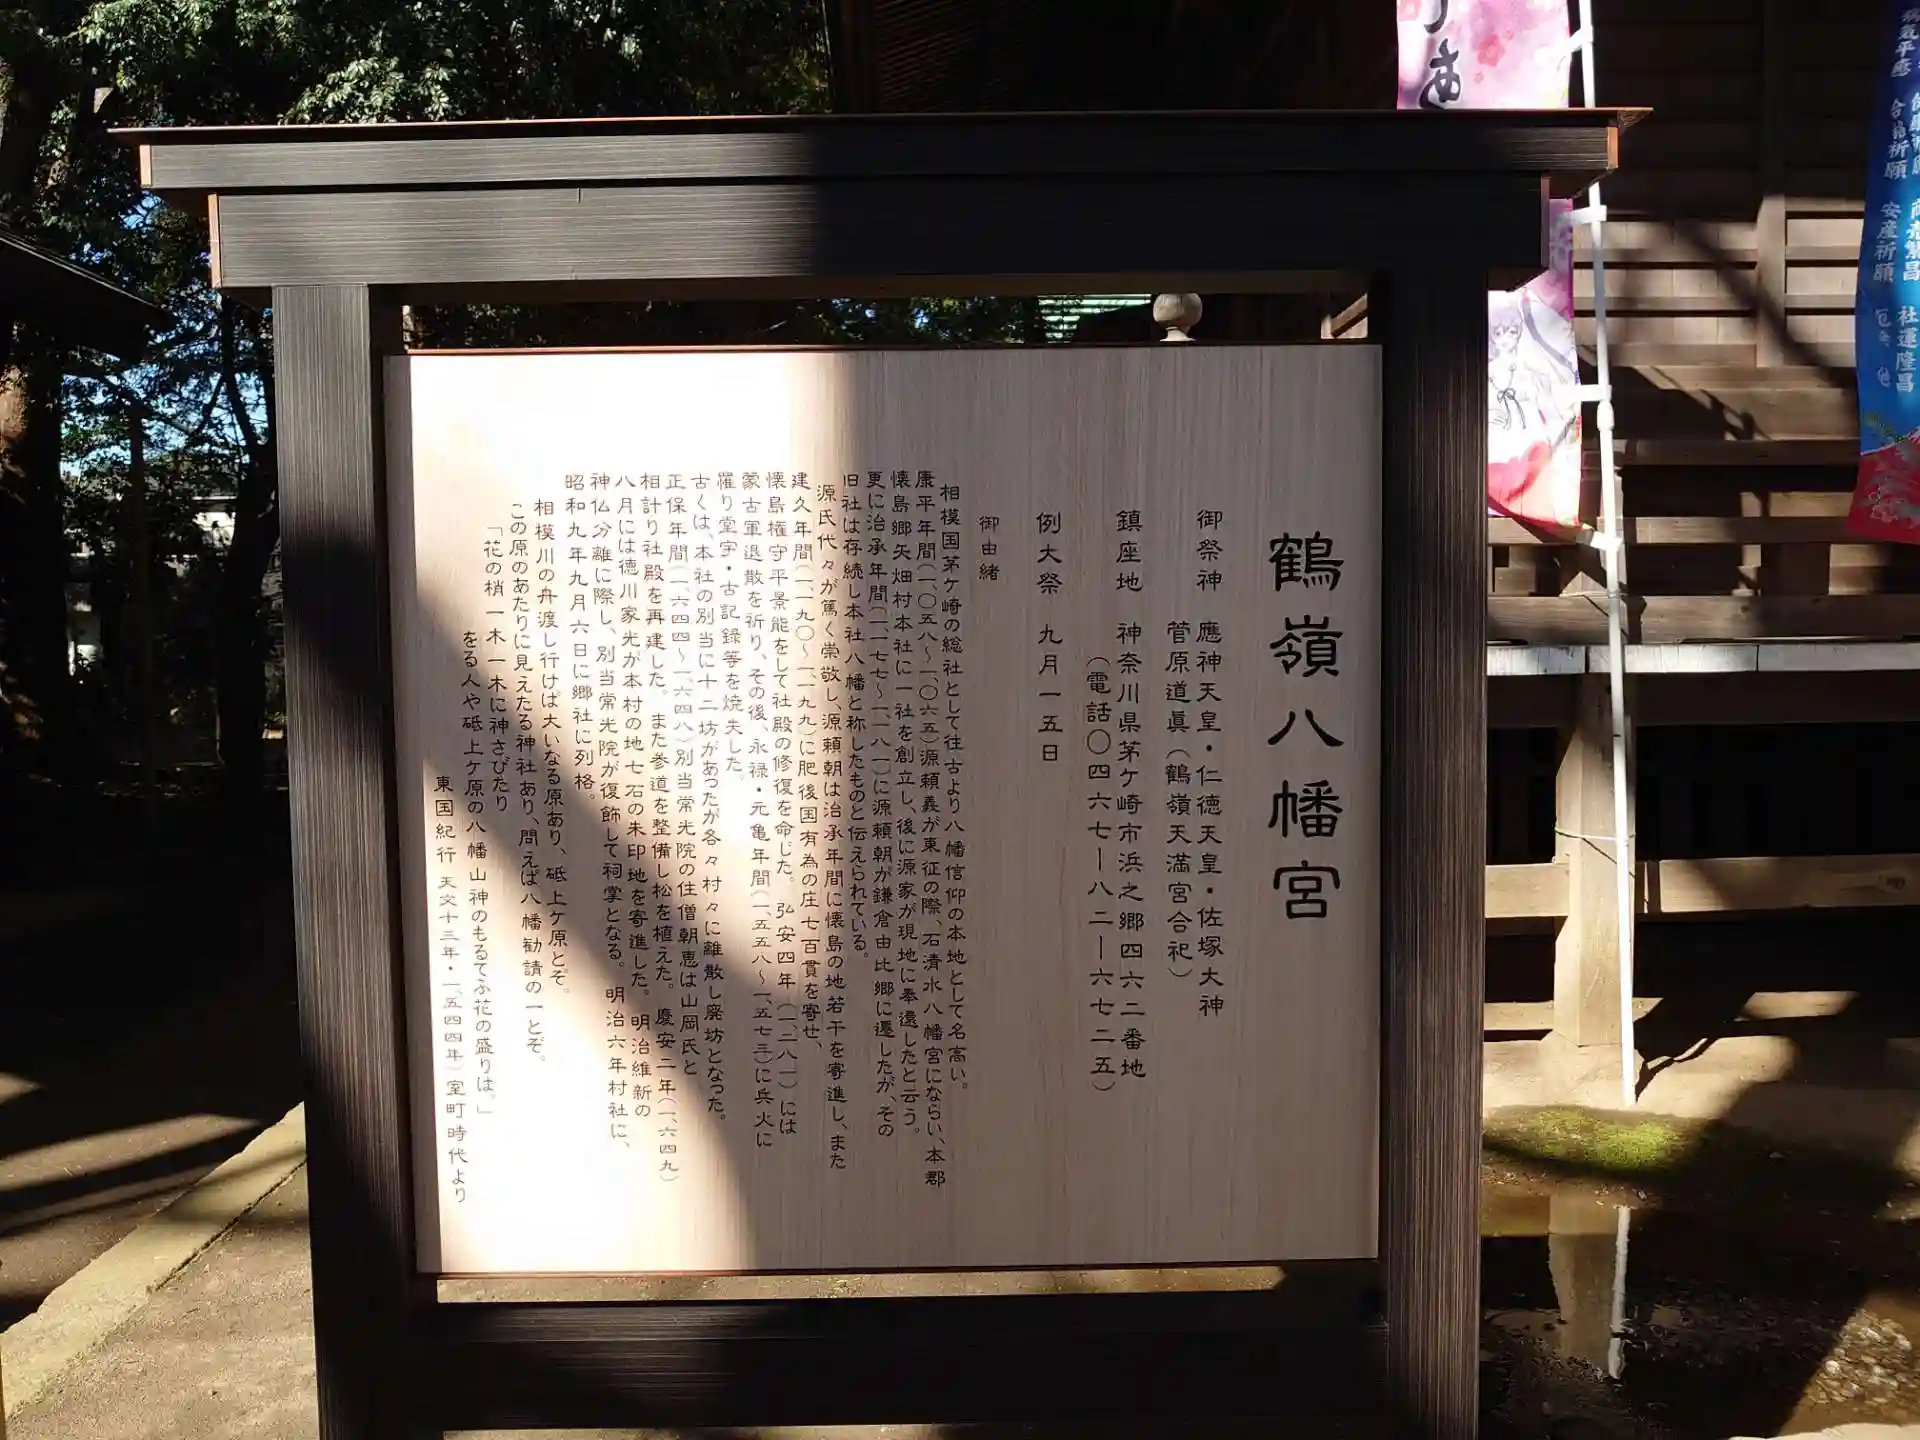 鶴嶺八幡宮
御祭神　應神天皇・仁徳天皇・佐塚大神
菅原道眞（鶴嶺天満宮合祀）
鎮座地　神奈川県茅ケ崎市浜之郷四六二番地
（電話〇四六七ー八二ー六七二五）
例大祭　九月一五日
御由緒
相模国茅ケ崎の総社として往古より八幡信仰の本地として名高い。
康平年間（一、〇五八～一、〇六五）源頼義が東征の際、石清水八幡宮にならい、本郡
懐島郷矢畑村本社に一社を創立し、後に源家が現地に奉還したと云う。
更に治承年間（一、一七七～一、一八一）に源頼朝が鎌倉由比郷に遷したが、その
旧社は存続し本社八幡と称したものと伝えられている。
源氏代々が篤く崇敬し、源頼朝は治承年間に懐島の地若干を寄進し、また
建久年間（一、一九〇～一、一九九）に肥後国有為の庄七百貫を寄せ、
懐島権守平景能をして社殿の修復を命じた。弘安四年（一、二八一）には
蒙古軍退散を祈り、その後、永禄・元亀年間（一、五五八～一、五七三）に兵火に
罹り堂宇・古記録等を焼失した。
古くは、本社の別当に十二坊があったが各々村々に離散し廃坊となった。
正保年間（一、六四四～一、六四八）別当常光院の住僧朝恵は山岡氏と
相計り社殿を再建した。また参道を整備し松を植えた。慶安二年（一、六四九）
八月には徳川家光が本村の地七石の朱印地を寄進した。明治維新の
神仏分離に際し、別当常光院が復飾して祠掌となる。明治六年村社に、
昭和九年九月六日に郷社に列格。
相模川の舟渡し行けば大いなる原あり、砥上ケ原とぞ。
この原のあたりに見えたる神社あり、問えば八幡勧請の一とぞ。
「花の梢一木一木に神さびたり
をる人や砥上ケ原の八幡山神のもるてふ花の盛りは。」
東国紀行　天文十三年・一、五四四年）室町時代より
合格祈願
安産祈願
商売繁昌
社運隆昌